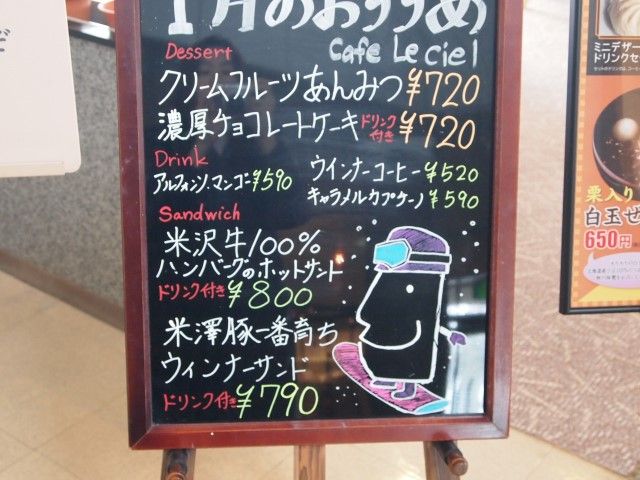 1月のおすすめ
Cafe Le ciel
Dessert
クリームフルーツあんみつ ¥720
濃厚チョコレートケーキ ドリンク付き ¥720
Drink
アルフォンソ・マンゴー ¥590
ウインナーコーヒー ¥520
キャラメルカプチーノ ¥590
Sandwich
米沢牛100%
ハンバーグのホットサンド
ドリンク付き ¥800
米澤豚一番育ち
ウィンナーサンド
ドリンク付き ¥790
ミニデザー
ドリンクセ
栗入り
白玉ぜ
650円